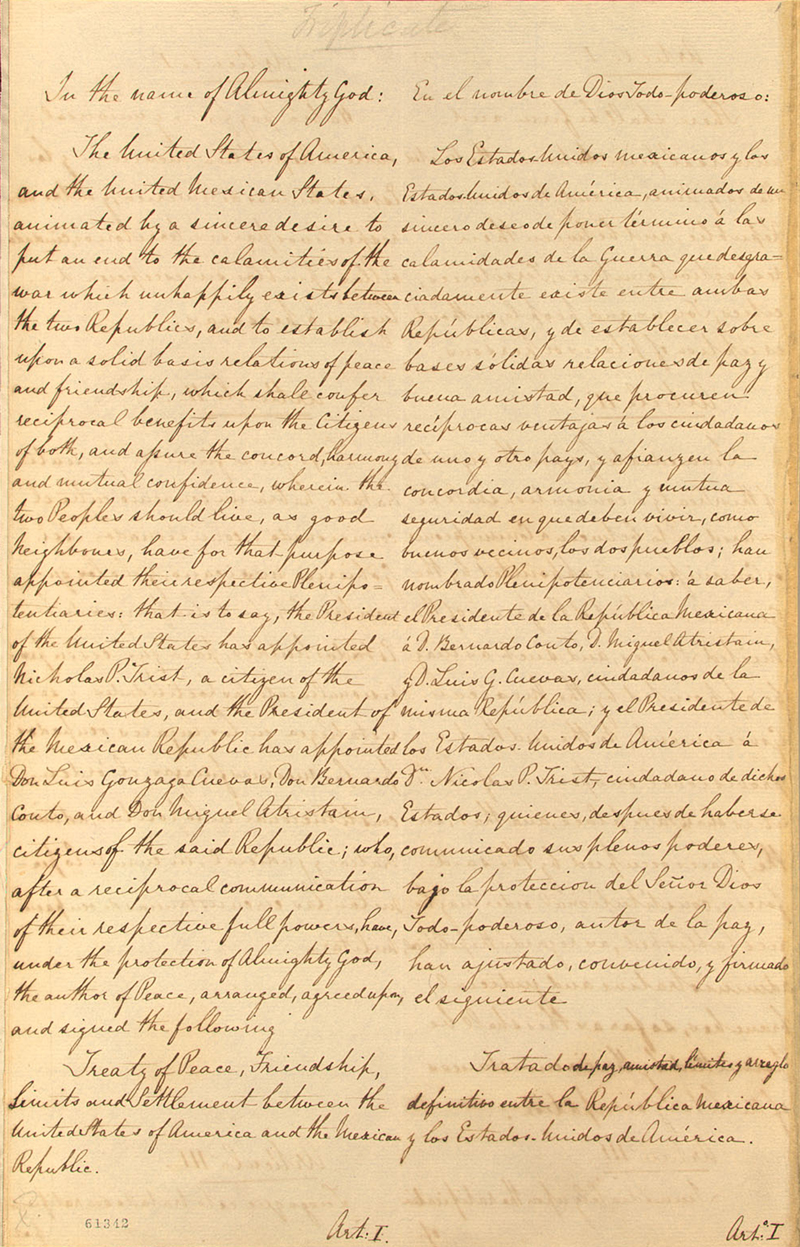 Triplicate
In the name of Almighty God:
The United States of America,
and the United Mexican States,
animated by a sincere desire to
put an end to the calamities of the
war which unhappily exists between
the two Republics, and to establish
upon a solid basis relations of peace
and friendship, which shall confer
reciprocal benefits upon the Citizens
of both, and assure the concord, harmony
and mutual confidence, wherein the
two Peoples should live, as good
Neighbours, have for that purpose
appointed their respective Plenipo=
tentiaries: that is to say, the President
of the United States has appointed
Nicholas P. Trist, a citizen of the
United States, and the President of
the Mexican Republic has appointed
Don Luis Gonzaga Cuevas, Don Bernardo
Couto, and Don Miguel Atristain,
citizens of the said Republic; who,
after a reciprocal communication
of their respective full powers, have,
under the protection of Almighty God,
the author of Peace, arranged, agreed upon,
and signed the following
Treaty of Peace, Friendship,
Limits and Settlement between the
United States of America and the Mexican
Republic.
61342
Art: I.
En el nombre de Dios Todo-poderoso:
Los Estados Unidos mexicanos y los
Estados-Unidos de América, animados de un
sincero deseo de poner término á las
calamidades de la Guerra que desgra=
ciadamente existe entre ambas
Repúblicas, y de establecer sobre
bases sólidas relaciones de paz y
buena amistad, que procuren
recíprocas ventajas á los ciudadanos
de uno y otro pays, y afianzen la
concordia, armonia y mutua
seguridad en que deben vivir, como
buenos vecinos, los dos pueblos; han
nombrado Plenipotenciarios: á saber,
el Presidente de la República Mexicana
á D. Bernardo Couto, D. Miguel Atristain,
y D. Luis G. Cuevas, ciudadanos de la
misma República; y el Presidente de
los Estados-Unidos de América á
Dn. Nicolas P. Trist, ciudadano de dichos
Estados; quienes, despues de haberse
comunicado sus plenos poderes,
bajo la proteccion del Señor Dios
Todo-poderoso, autor de la paz,
han ajustado, convenido, y firmado
el siguiente
Tratado de paz, amistad, límites y arreglo
definitivo entre la República Mexicana
y los Estados-Unidos de América.
Arto. I